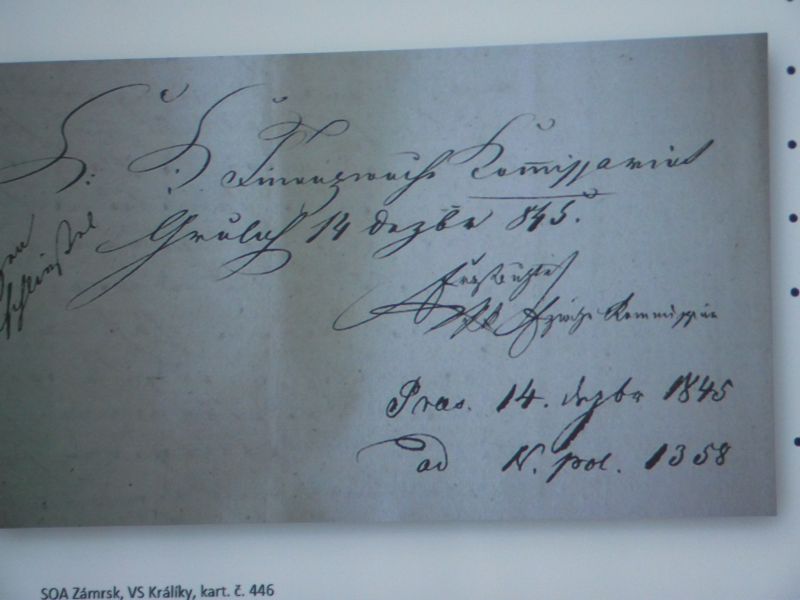 K: K: Finanzwach Kommissariat
Grulich 14 dezbr 845.
Kommissär
Präs. 14. dezbr 1845
ad N. pol. 1358
SOA Zámrsk, VS Králíky, kart. č. 446